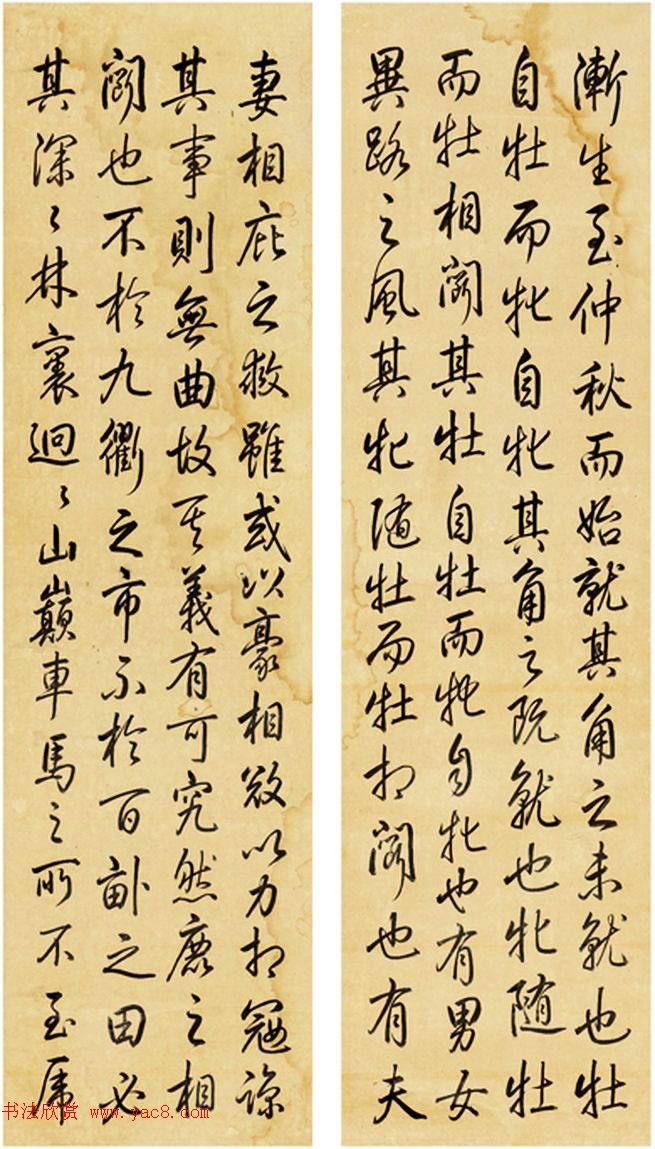 漸生至仲秋而始就其角之未就也牡
自牡而牝自牝其角之既就也牝隨牡
而牡相鬬其牡自牡而牝自牝也有男女
異路之風其牝随牡而牡相鬬也有夫
妻相庇之救雖或以豪相以力相寇諒
其事則無曲故其義有可究然鹿之相
鬬也不於九衢之市不於百畝之田必
其深〻林裏迴〻山巔車馬之所不至
书法欣赏 www.yac8.com